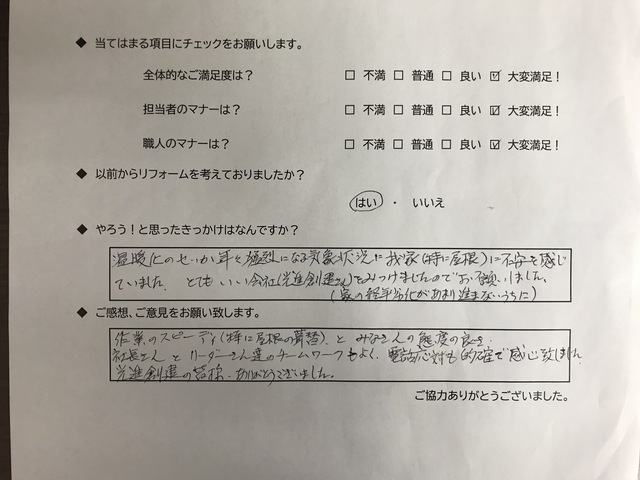 ◆ 当てはまる項目にチェックをお願いします。
全体的なご満足度は? □ 不満 □ 普通 □ 良い ☑ 大変満足!
担当者のマナーは? □ 不満 □ 普通 □ 良い ☑ 大変満足!
職人のマナーは? □ 不満 □ 普通 □ 良い ☑ 大変満足!
◆ 以前からリフォームを考えておりましたか?
はい ・ いいえ
◆ やろう!と思ったきっかけはなんですか?
温暖化のせいか年々猛烈になる気象状況に我家(特に屋根)に不安を感じ
ていました。とてもいい会社(光進創建さん)をみつけましたのでお願いしました。
(家の経年劣化があまり進まないうちに)
◆ ご感想、ご意見をお願い致します。
作業のスピーディ(特に屋根の葺替)とみなさんの態度の良さ、
社長さんとリーダーさん達のチームワークもよく、電話応対も的確で感心致しました。
光進創建の皆様、ありがとうございました。
ご協力ありがとうございました。